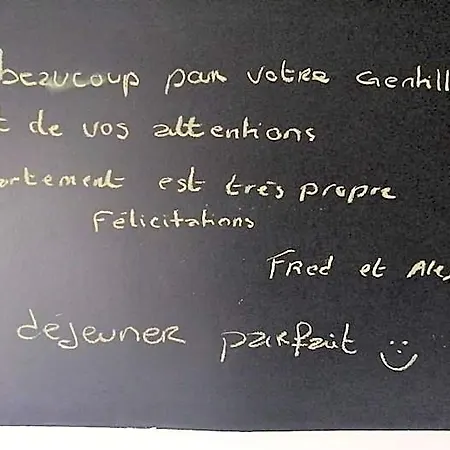 beaucoup par votre Gentill
t de vos attentions
ortement est très propre
Félicitations
Fred et Ale
déjeuner parfait